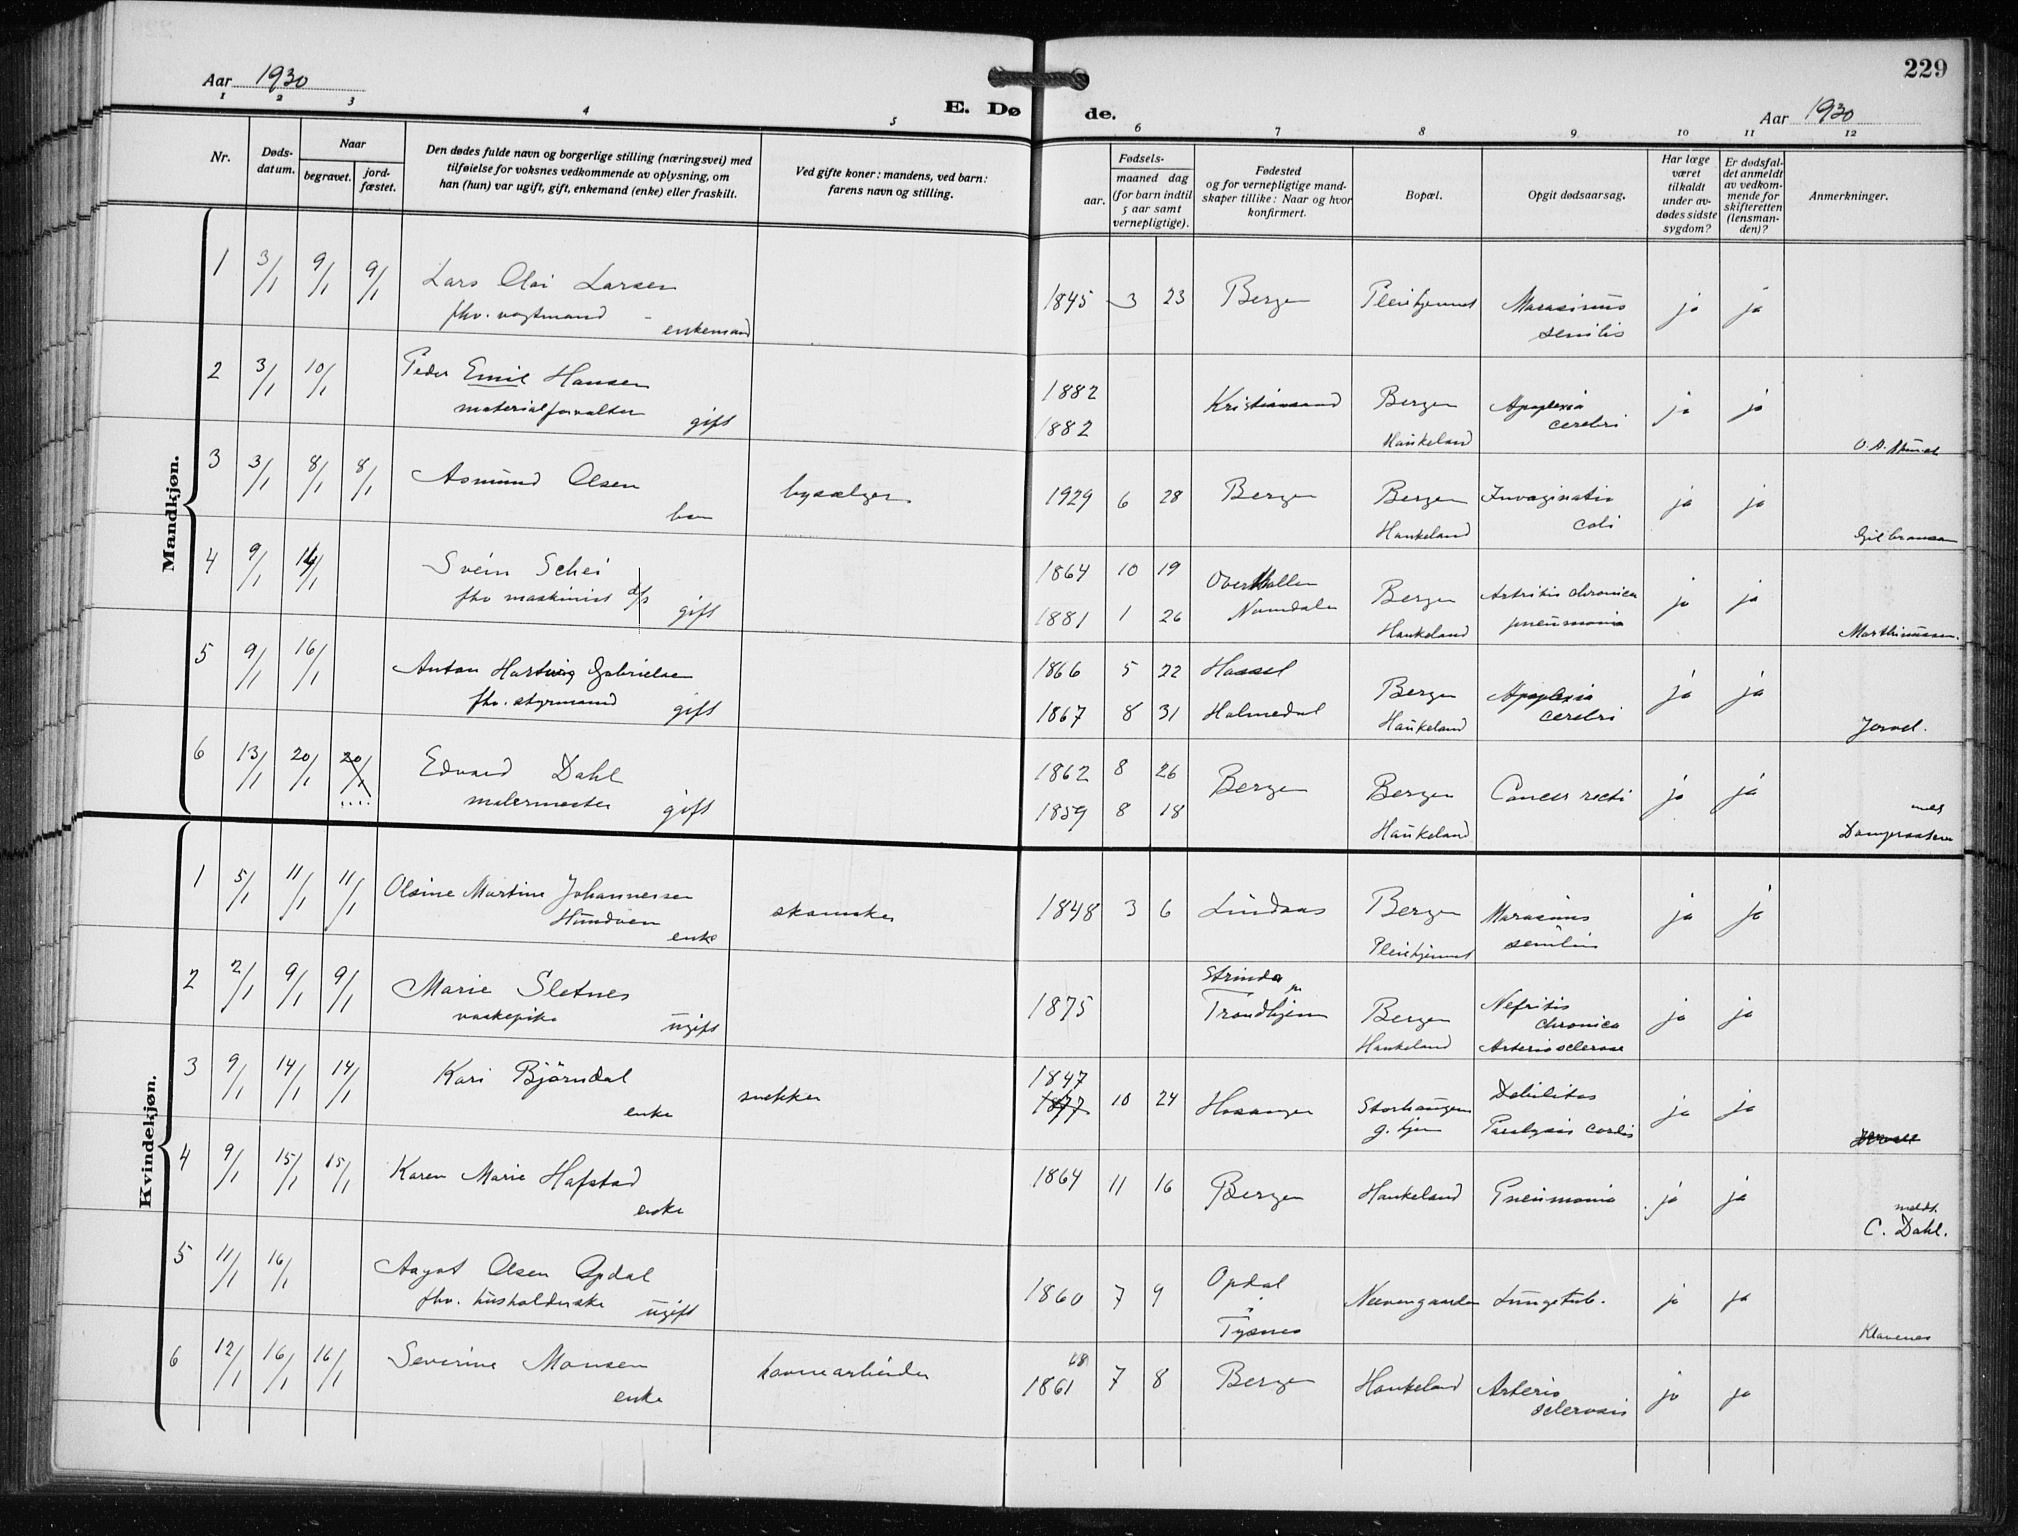 229
Aar 1930
E. Dø de.
Aar 1930
1 2 3 4 5 6 7 8 9 10 11 12
Nr.
Døds-
datum.
Naar
begravet.
jord-
fæstet.
Den dødes fulde navn og borgerlige stilling (næringsvei) med
tilføielse for voksnes vedkommende av oplysning, om
han (hun) var ugift, gift, enkemand (enke) eller fraskilt.
Ved gifte koner: mandens, ved barn:
farens navn og stilling.
Fødsels-
aar.
maaned dag
(for barn indtil
5 aar samt
vernepligtige).
Fødested
og for vernepligtige mand-
skaper tillike: Naar og hvor
konfirmert.
Bopæl.
Opgit dødsaarsag.
Har læge
været
tilkaldt
under av-
dødes sidste
sygdom?
Er dødsfal-
det anmeldt
av vedkom-
mende for
skifteretten
(lensman-
den)?
Anmerkninger.
Mandkjøn.
1 3/1 9/1 9/1 Lars Olai Larsen
fhv. vogtmand - enkemand
1845 3 23 Bergen Pleiehjemmet Marasimus
senilis
ja ja
2 3/1 10/1 Peder Emil Hansen
materialforvalter gift
1882
1882
Kristiansand Bergen
Haukeland
Apoplexia
cerebri
ja ja
3 3/1 8/1 8/1 Asmund Olsen
barn
byselger
1929 6 28 Bergen Bergen
Haukeland
Invaginatio
coli
ja ja
4 9/1 14/1 Svein Schei
fhv maskinist d/s gift
1864 10 19
1881 1 26
Overhallen
Namdalen
Bergen
Haukeland
Artritis chronica
pneumonia
ja ja
Marthinussen.
5 9/1 16/1 Anton Hartvig Gabrielsen
fhv. styrmand gift
1866 5 22 Hassel
1867 8 31 Holmedal
Bergen
Haukeland
Apoplexia
cerebri
ja ja
6 13/1 20/1 20/1 Edvard Dahl
malermester gift
1862 8 26
1859 8 18
Bergen Bergen
Haukeland
Cancer recti
ja ja
Kvindekjøn.
1 5/1 11/1 11/1 Olsine Martine Johannessen
Hundven
enke
1848 3 6 Lindaas Bergen
Pleiehjemmet
Marasmus
senilis
ja ja
2 2/1 9/1 9/1 Marie Sletnes
vaskepike ugift
1875 Strinda
pr
Trondhjem
Bergen
Haukeland
Nefritis
chronica
Arteriosclerose
ja ja
3 9/1 14/1 14/1 Kari Björndal
enke
snekker
1847
1877
10 24 Hosanger Storhaugen
g. hjem
Debilitas
Paralysis cordis
ja ja
4 9/1 15/1 15/1 Karen Marie Hafstad
enke
1864 11 16 Bergen Haukeland Pneumonia
ja ja
meldt.
C. Dahl.
5 11/1 16/1 Aagot Olsen Opdal
fhv. husholderske ugift
1860 7 9 Opdal
i
Tysnes
Neevengaarden Lungetub.
ja ja
Klavenes
6 12/1 16/1 16/1 Severine Monsen
enke
havnearbeider
68
1861 7 8 Bergen Haukeland Arterio
sclerosis
ja ja